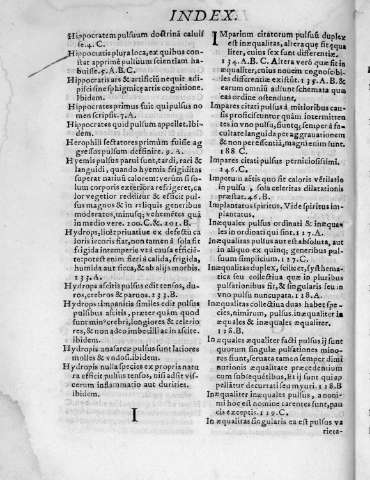 INDEX.
Hippocratem pulsuum doctrinā caluisse. 4. C.
Hippocratis plura loca, ex quibus constat apprime pulsuum scientiam habuisse. 5. A. B. C.
Hippocratis ars & artificiū neque adipisci sine sphigmicę artis cognitione. Ibidem.
Hippocrates primus fuit qui pulsus nomen scripsit. 7. A.
Hippocrates quid pulsum appellet. Ibidem.
Herophili sectatores primùm fuisse aggressos pulsum definire. 9. A.
Hyemis pulsus parui sunt, tardi, rari &
languidi, quando hyemis frigiditas
superat natiuū calorem: verùm si solum corporis exteriora refrigeret, calor vegetior redditur & efficit pulsus magnos & in reliquis generibus
moderatos, minusq; vehemētes quā
in medio vere. 200. C. & 201. B.
Hydrops, licèt priuatiue ex defectu caloris iecoris fiat, non tamen à sola fit
frigida intemperie vt à causa efficiente: potest enim fieri à calida, frigida,
humida aut sicca, & ab alijs morbis.
133. A.
Hydrops ascitis pulsus edit tensos, duros, crebros & paruos. 133. B.
Hydrops timpanitis similes edit pulsus
pulsibus ascitis, præter quàm quod
sunt min⁹ crebri, longiores & celeriores, & non adeo imbecilli ac in ascite.
Ibidem.
Hydropis anasarcæ pulsus sunt latiores
molles & vndosi. ibidem.
Hydropis nulla species ex propria natura efficit pulsus tensos, nisi adsit viscerum inflammatio aut durities.
Ibidem.
I
IMparium citatorum pulsuū duplex
est inæqualitas, alteraque fit equaliter, cuius sex sunt differentiæ.
134. A. B. C. Altera verò quæ fit in
æqualiter, cuius nouem cognoscibiles differentiæ existit. 135. A. B. C.
earum omniū adsunt schemata quæ
eas ordine ostendunt.
Impares citati pulsus à mitioribus causis proficiscuntur quàm intermittentes in vno pulsu, suntq; semper à facultate languida per aggrauationem
& non per essentiā, magis enim sunt.
188. C.
Impares citati pulsus perniciosissimi.
145. C.
Impetum actio quo fit caloris vēsilatio
in pulsu, sola celeritas dilatationis
præstat. 46. B.
Implantatus spiritus. Vide spiritus implantatus.
Inæquales pulsus ordinati & inæquales in ordinati qui sint. 117. A.
Inæqualitas pulsus aut est absoluta, aut
in aliquo ex quinq; generibus pulsuum simplicium. 117. C.
Inæqualitas duplex, scilicet, systhematica seu collectiua quæ in pluribus
pulsationibus fit, & singularis seu in
vno pulsu nuncupata. 118. A.
Inæqualitas collectiua duas habet species, nimirum, pulsus inæqualiter inæquales & inæquales æqualiter.
118. B.
Inæquales æqualiter facti pulsus ij sunt
quorum singulæ pulsationes minores fiunt, seruata tamen semper simili
notionis æqualitate præcedenium
cum subsequētibus. Et ij sunt qui appellātur decurtati seu myuri. 118. B
Inæqualiter inæquales pulsus, a nonimi hoc est nomine carentes sunt, paucis exceptis. 119. C.
Inæqualitas singularis ea est pulsus varieta-